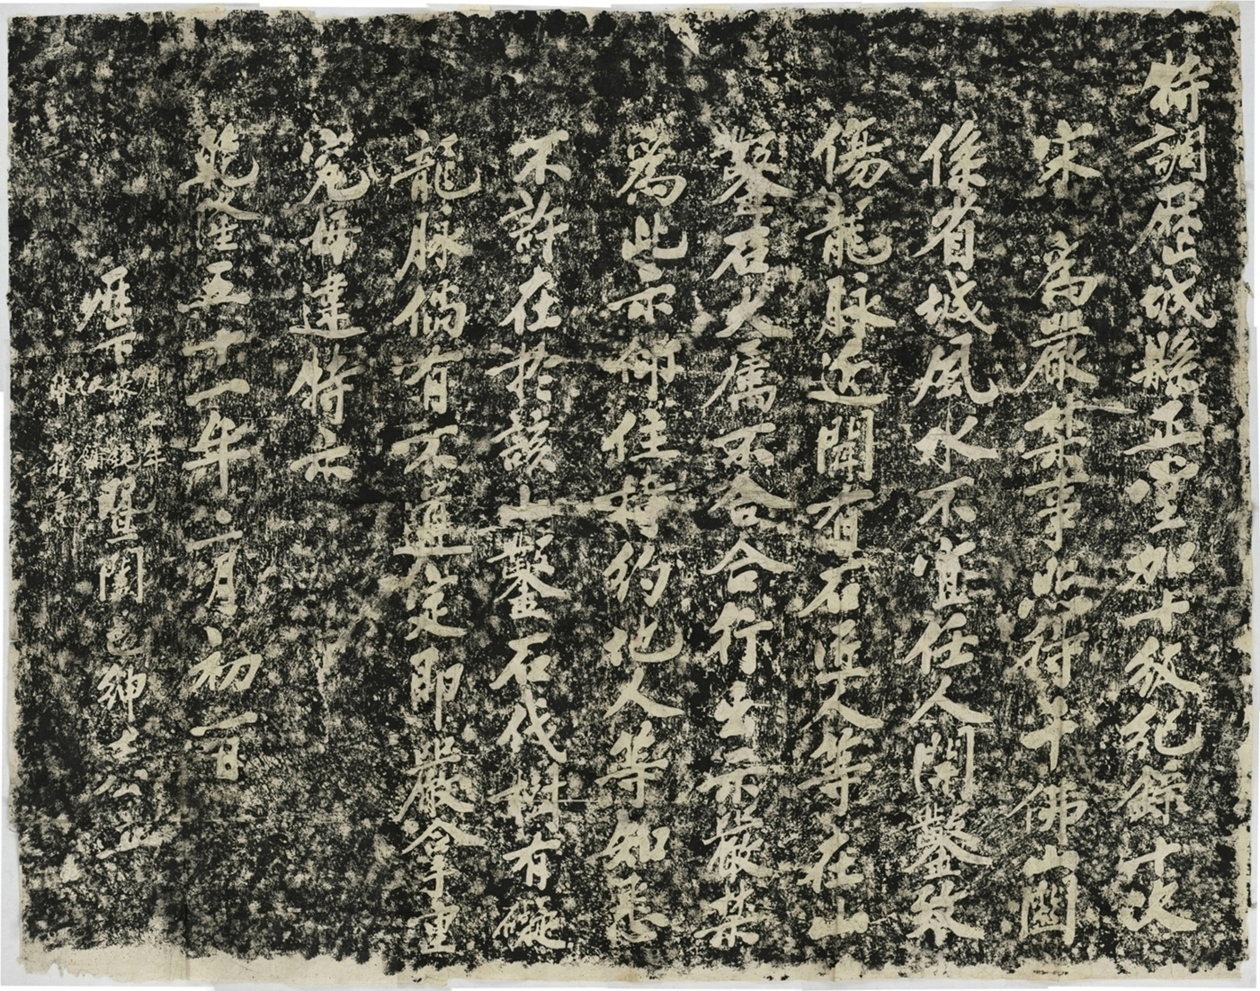 特調歷城縣正堂加十級紀錄十次
宋 為嚴禁事照得千佛山關
係省城風水不宜任人開鑿致
傷龍脉近聞有石匠人等在山
鑿石大属不合合行出示嚴禁
爲此示仰住持約地人等知悉
不許在於該山鑿石伐樹有礙
龍脉倘有不遵定即嚴拿重
究毋違特示
乾隆五十一年二月初一日
歷下 暨闔邑紳士公立